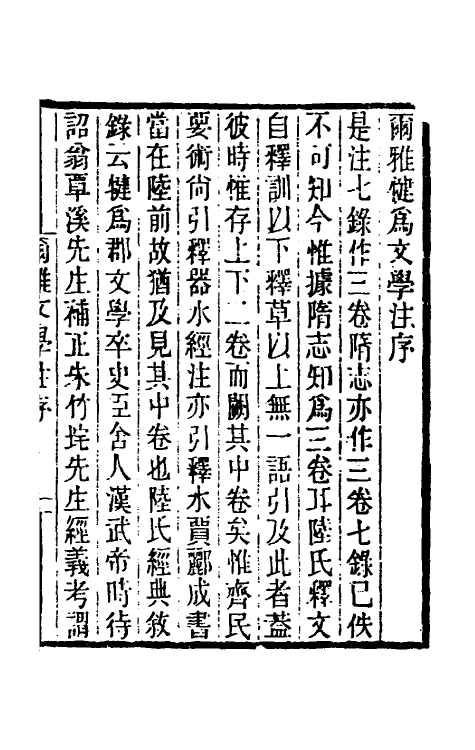 爾雅犍爲文學注序
是注七錄作三卷隋志亦作三卷七錄已佚
不可知今惟據隋志知爲三卷耳陸氏釋文
自釋訓以下釋草以上無一語引及此者蓋
彼時惟存上下二卷而闕其中卷矣惟齊民
要術尙引釋器水經注亦引釋水賈酈成書
當在陸前故猶及見其中卷也陸氏經典敘
錄云犍爲郡文學卒史臣舍人漢武帝時待
詔翁覃溪先生補正朱竹垞先生經義考謂
爾雅文學注序 一